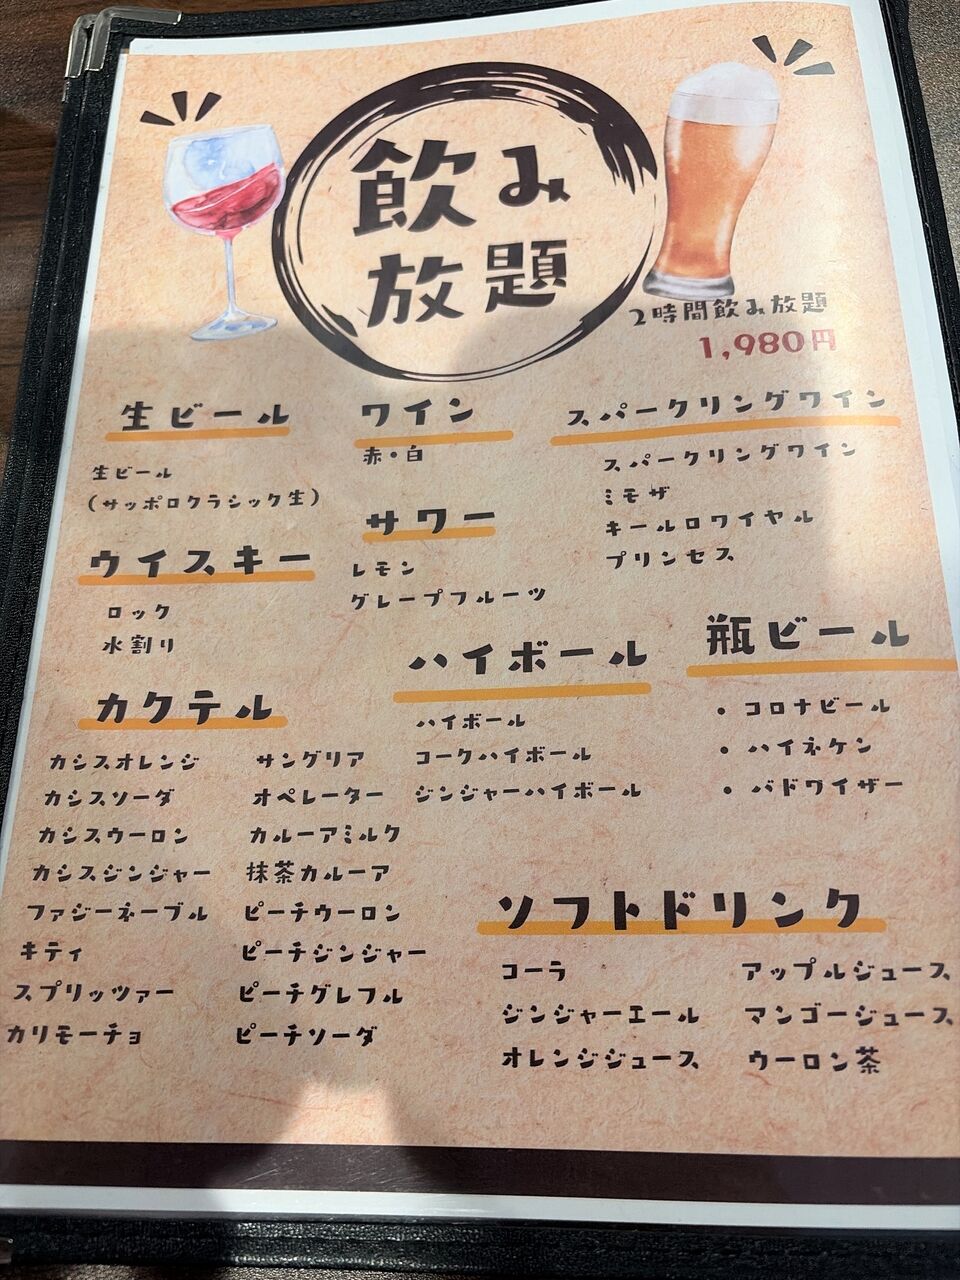 飲み
放題
2時間飲み放題
1,980円
生ビール
生ビール
(サッポロクラシック生)
ワイン
赤・白
スパークリングワイン
スパークリングワイン
ミモザ
キールロワイヤル
プリンセス
サワー
レモン
グレープフルーツ
ウイスキー
ロック
水割り
ハイボール
ハイボール
コークハイボール
ジンジャーハイボール
瓶ビール
・コロナビール
・ハイネケン
・バドワイザー
カクテル
カシスオレンジ
カシスソーダ
カシスウーロン
カシスジンジャー
ファジーネーブル
キティ
スプリッツァー
カリモーチョ
サングリア
オペレーター
カルーアミルク
抹茶カルーア
ピーチウーロン
ピーチジンジャー
ピーチグレフル
ピーチソーダ
ソフトドリンク
コーラ
ジンジャーエール
オレンジジュース
アップルジュース
マンゴージュース
ウーロン茶